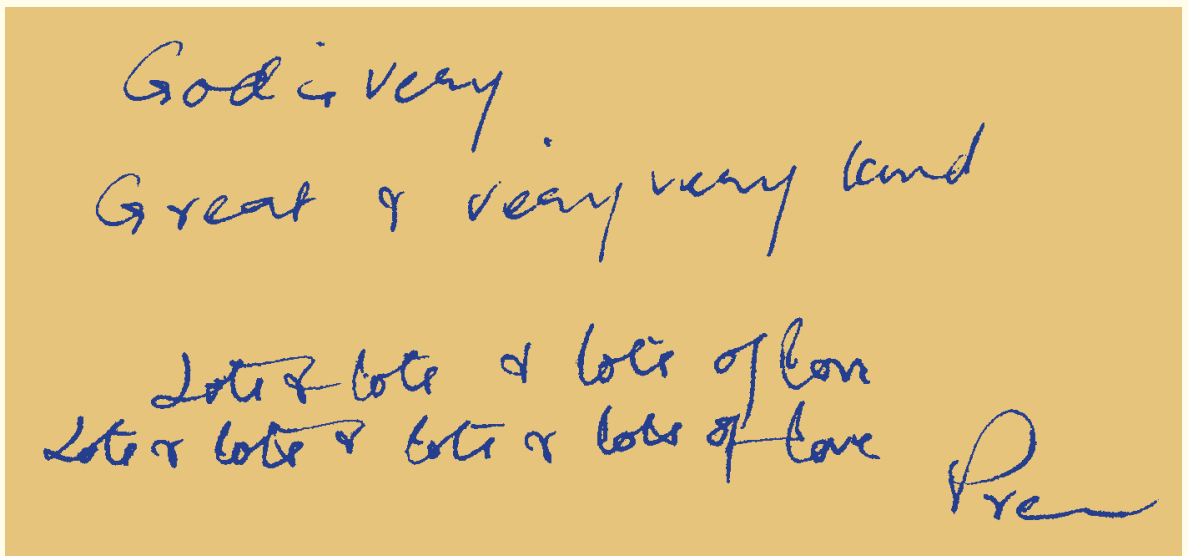 God is very
Great & very very kind
Lots & lots & lots of love
Lots & lots & lots & lots of love
Prem